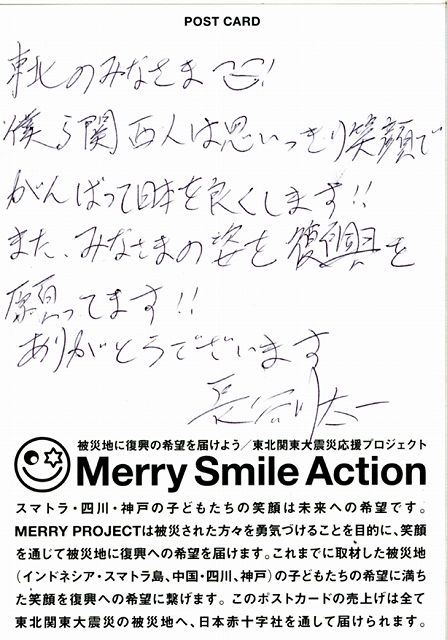 POST CARD
東北のみなさま
僕ら関西人は思いっきり笑顔で
がんばって日本を良くします!!
また、みなさまの姿を復興を
願ってます!!
ありがとうでざいます
長谷川 太一
被災地に復興の希望を届けよう/東北関東大震災応援プロジェクト
Merry Smile Action
スマトラ・四川・神戸の子どもたちの笑顔は未来への希望です。
MERRY PROJECTは被災された方々を勇気づけることを目的に、笑顔
を通じて被災地に復興への希望を届けます。これまでに取材した被災地
(インドネシア・スマトラ島、中国・四川、神戸)の子どもたちの希望に満ち
た笑顔を復興への希望に繋げます。このポストカードの売上げは全て
東北関東大震災の被災地へ、日本赤十字社を通して届けられます。